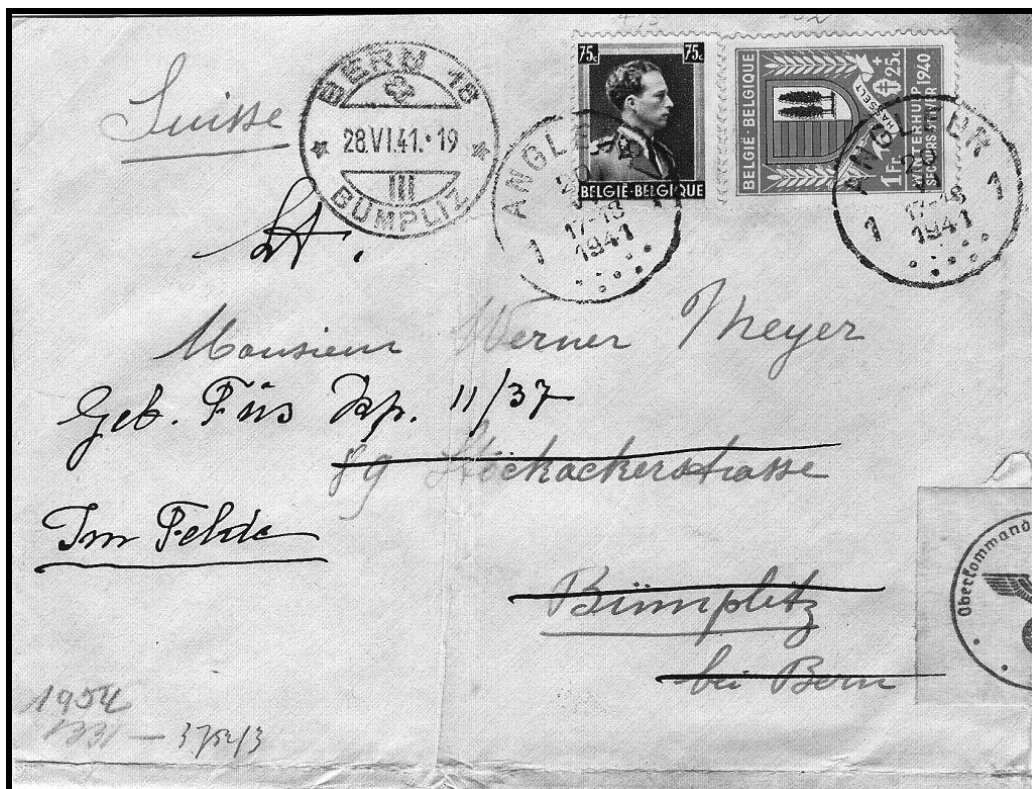 Suisse
BERN 18
28.VI.41.•19
III
BÜMPLIZ
75c 75c
BELGIË-BELGIQUE
BELGIË-BELGIQUE
1Fr + 25c
HASSELT
WINTERHULP
SECOURS D'HIVER 1940
ANGLEUR
1 20 1
17-18
1941
ANGLEUR
1 20 1
17-18
1941
Monsieur Werner Meyer
Geb. Füs Kp. 11/37
89 Stöckackerstrasse
Im Felde
Bümplitz
bei Bern
Oberkommand
1954